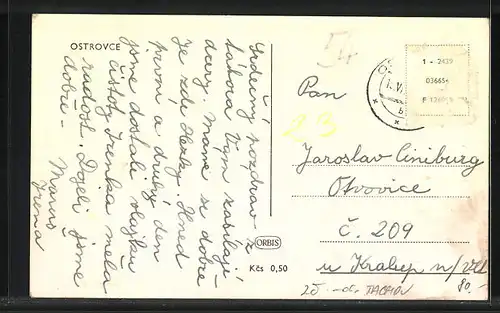 OSTROVCE
Srdečný pozdrav z
tábora Vám zasílají
Máme se dobře
Je zde hezky. Hned
první a druhý den
jsme dostali vlajku
čistoty Irenka měla
radost. Dojeli jsme
dobře -
Irena
ORBIS
Kčs 0,50
1 - 2439
036656
Pan
23
Jaroslav Ciniburg
Otvovice
č. 209
u Kralup n/Vlt
80.-